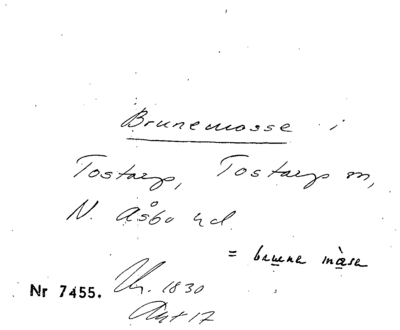 Brunemosse i
Tostarp, Tostarp m,
N. Åsbo hd.
= brune måse
Nr 7455.
1830
Akt 17